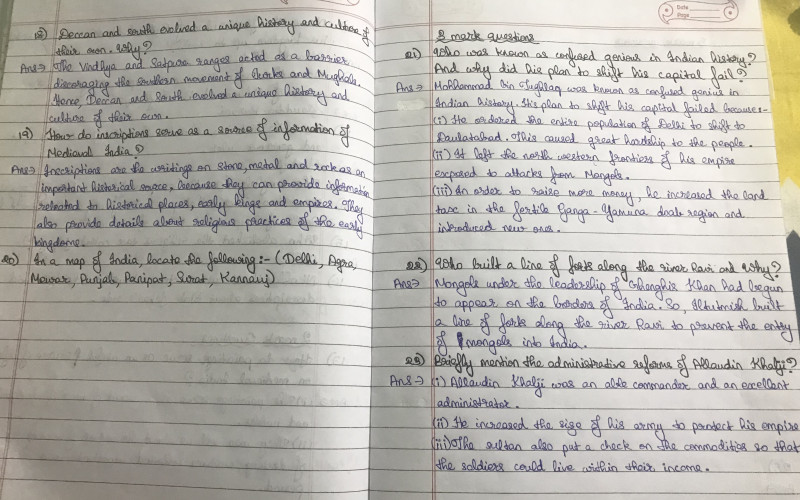 18) Deccan and south evolved a unique history and culture of
their own. Why?
Ans→ The Vindhya and Satpura ranges acted as a barrier
discouraging the southern movement of and Mughals.
Hence, Deccan and South evolved a unique history and
culture of their own.
19) How do inscriptions serve as a source of information of
Medieval India?
Ans→ Inscriptions are the writings on stone, metal and rock as an
important historical source, because they can provide information
releated to historical places, early kings and empires. They
also provide details about religious practices of the early
kingdoms.
20) In a map of India, locate the following:- (Delhi, Agra,
Mewar, Punjab, Panipat, Surat, Kannauj)
Date
Page
2 mark questions
21) Who was known as confused genious in Indian history?
And why did his plan to shift his capital fail?
Ans→ Mohhammad Bin Tughlaq was known as confused genius in
Indian history. His plan to shift his capital failed because:-
(i) He ordered the entire population of Delhi to shift to
Daulatabad. This caused great hardship to the people.
(ii) It left the north western frontiers of his empire
exposed to attacks from Mongols.
(iii) In order to raise more money, he increased the land
tax in the fertile Ganga-Yamuna doab region and
introduced new ones.
22) Who built a line of forts along the river Ravi and Why?
Ans→ Mongols under the leadership of Ghenghis Khan had begun
to appear on the borders of India. So, Iltutmish built
a line of forts along the river Ravi to prevent the entry
of mongols into India.
23) Briefly mention the administrative reforms of Allaudin Khalji?
Ans→ (i) Allaudin Khalji was an able commander and an excellent
administrator.
(ii) He increased the size of his army to protect his empire
(iii) The sultan also put a check on the commodities so that
the soldiers could live within their income.